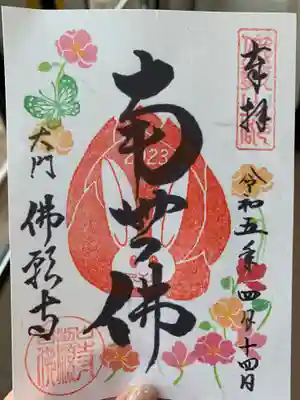 奉拝
令和五年四月十四日
南无佛
2023
大門
佛願寺